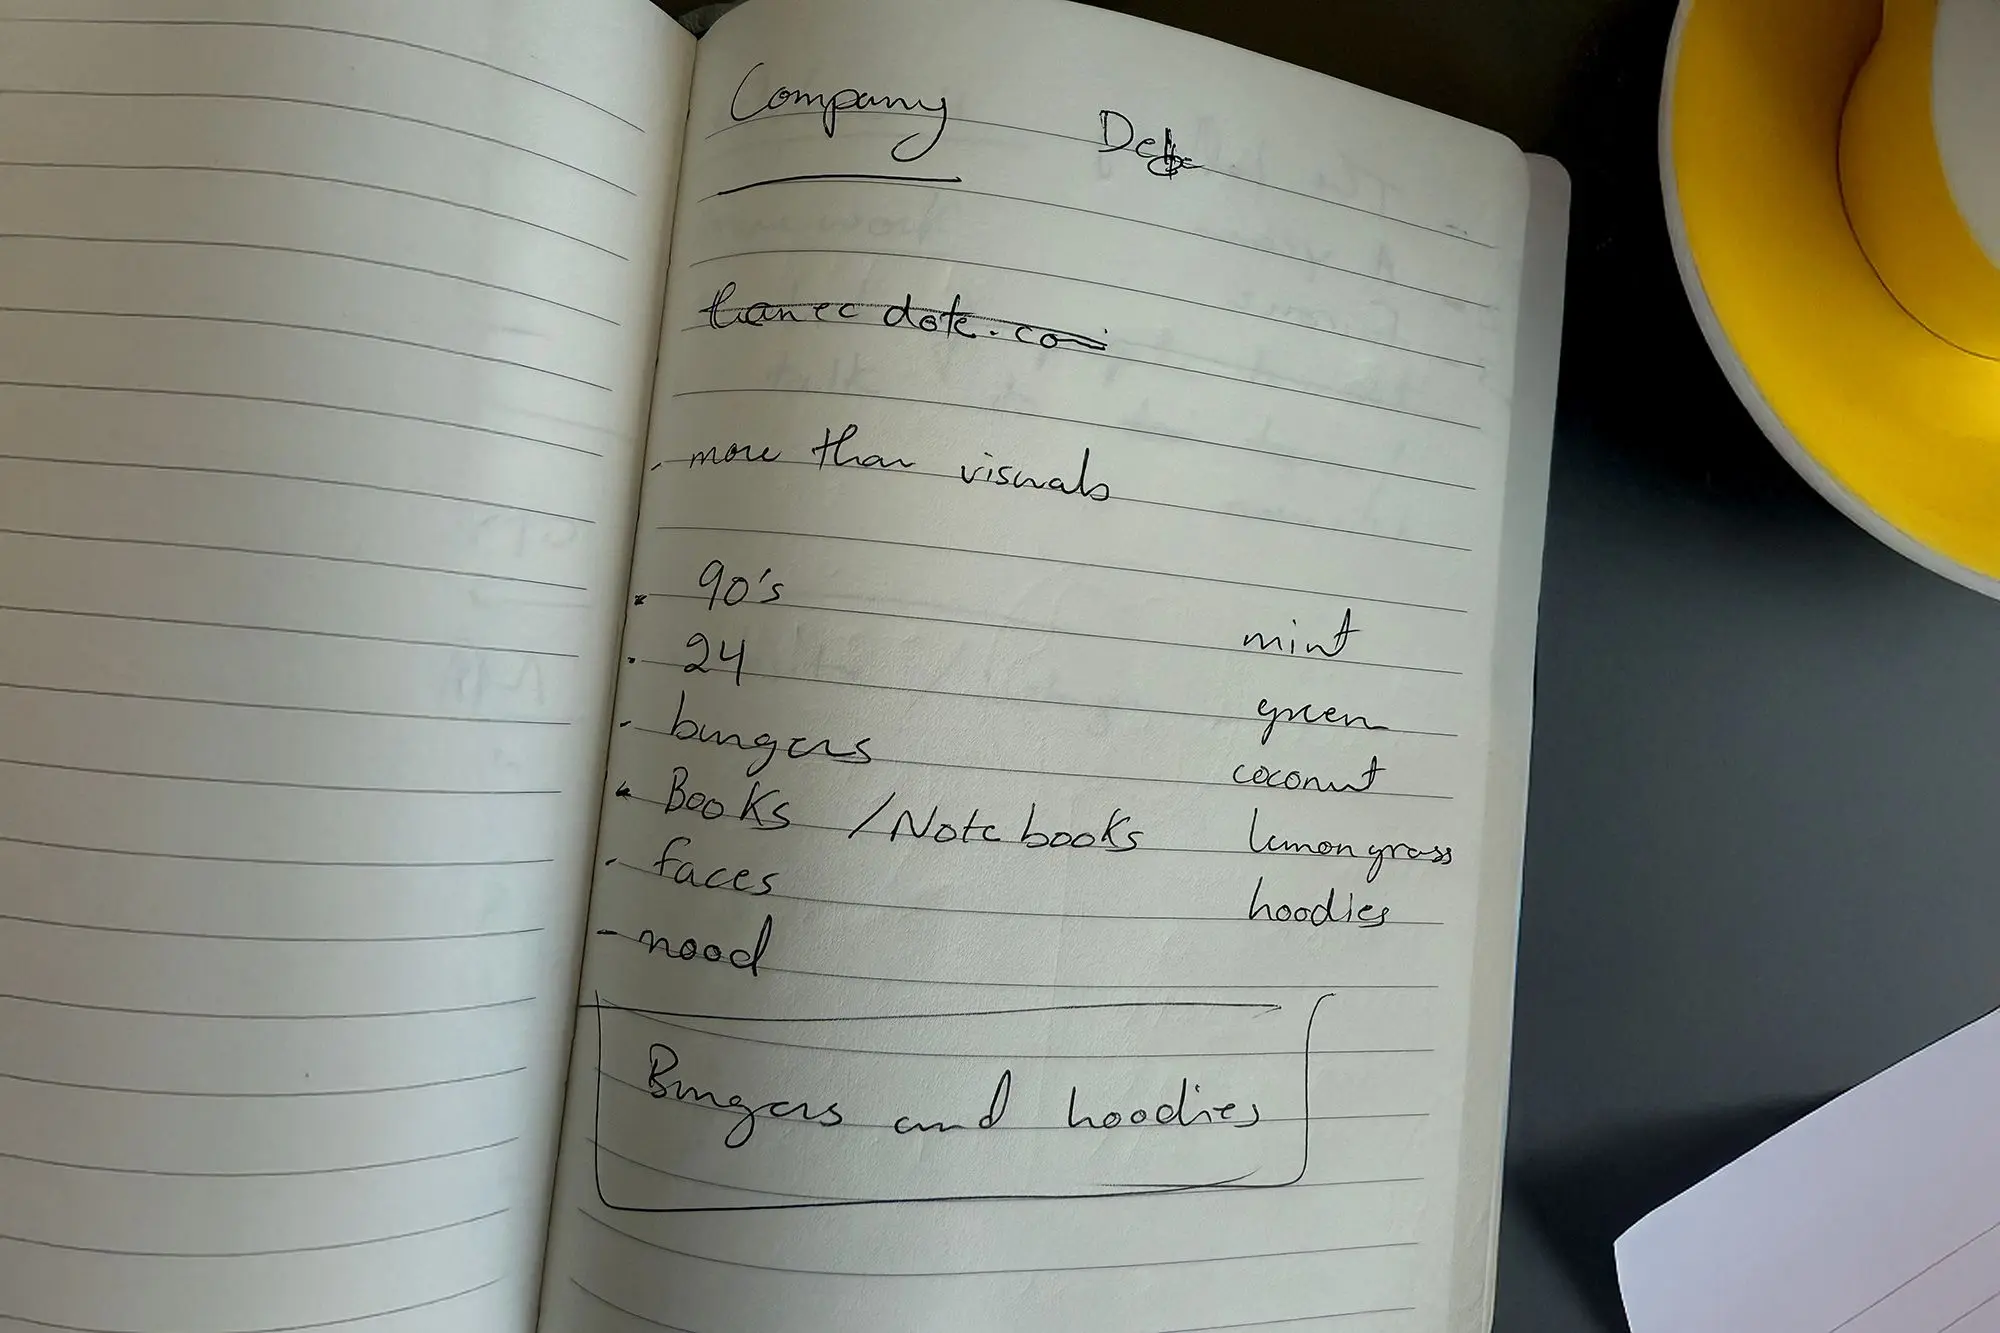 Company
more than visuals
90's
24
burgers
Books / Notebooks
faces
mood
mint
green
coconut
lemon grass
hoodies
Burgers and hoodies